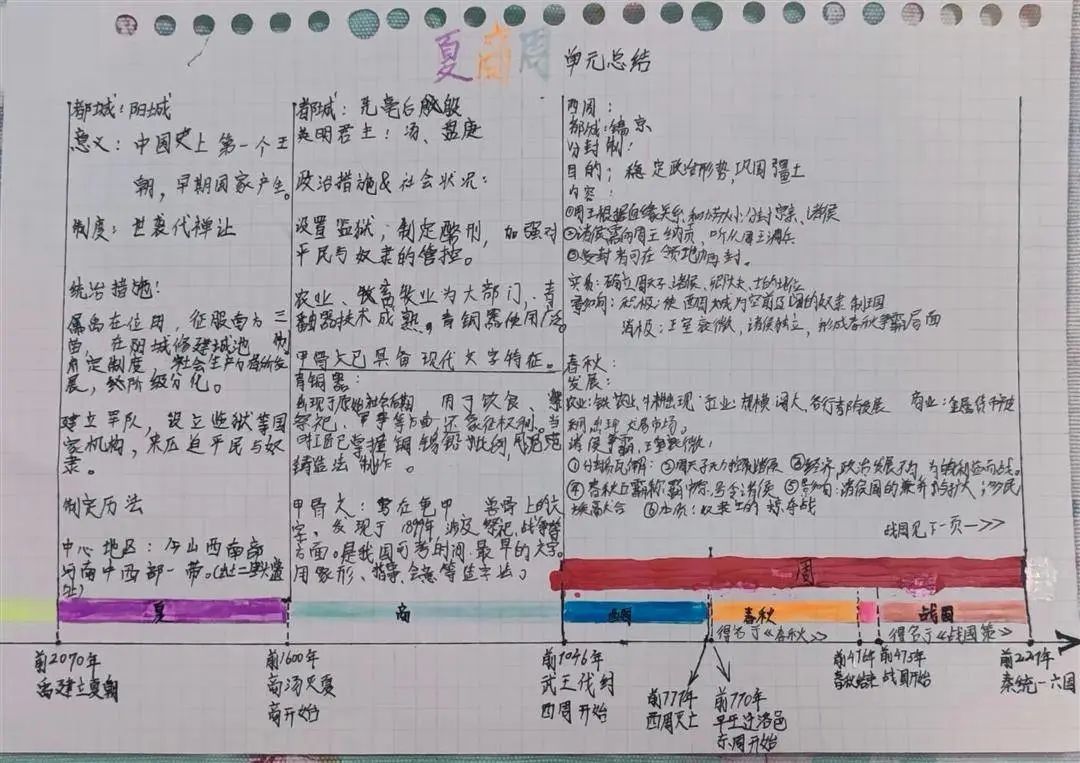 夏商周 单元总结
都城：阳城
意义：中国史上第一个王
朝，早期国家产生。
制度：世袭代禅让
统治措施：
禹在位用，征服南方三
苗，在阳城修建城池
定制度 社会生产力
展，阶级分化。
建立军队，设立监狱等国
家机构，来压迫平民与奴
隶。
制定历法
中心地区：今山西南部
河南中西部一带。
都城：先亳后殷
英明君主：汤、盘庚
政治措施&社会状况：
设置监狱，制定酷刑，加强对
平民与奴隶的管控。
农业、畜牧业为大部门，青
铜器技术成熟。青铜器使用广泛。
甲骨文已具备现代文字特征。
青铜器：
出现于原始社会后期 用于饮食、
祭祀、军事等方面，还象征权利。当
时工匠已掌握铜锡铅的比例，用泥范
铸造法制作。
甲骨文：写在龟甲 兽骨上的文
字，发现于1899年 涉及祭祀、战争等
方面。是我国可考时间最早的文字。
用象形、指事、会意等造字法。
西周：
都城：镐京
分封制：
目的：稳定政治形势，巩固疆土
内容：
①周王根据血缘关系和功劳大小分封宗亲、诸侯
②诸侯需向周王纳贡，听从周王调兵
③受封者可在领地内再封。
实质：确立周天子、诸侯、卿大夫、士的等级
影响：积极：使西周成为空前强国的奴隶制王国
消极：王室衰微，诸侯独立，形成春秋争霸局面
春秋：
发展：
农业：铁农业、牛耕出现 手工业：规模阔大，各行各业发展 商业：金属货币
出现大商市场。
诸侯争霸，王室衰微：
①分封制瓦解 ②周天子无力控制诸侯 ③经济、政治发展不均，为争利益而战。
④春秋五霸称霸中原，号令诸侯 ⑤影响：诸侯国的兼并与扩大；多民
族融合 ⑥本质：奴隶主的掠夺战
战国见下一页—>>
周
夏 商 西周 春秋 战国
得名于《春秋》 得名于《战国策》
前2070年
禹建立夏朝
前1600年
商汤灭夏
商开始
前1046年
武王伐纣
西周开始
前771年
西周灭亡
前770年
平王迁洛邑
东周开始
前476年
春秋结束
前475年
战国开始
前221年
秦统一六国